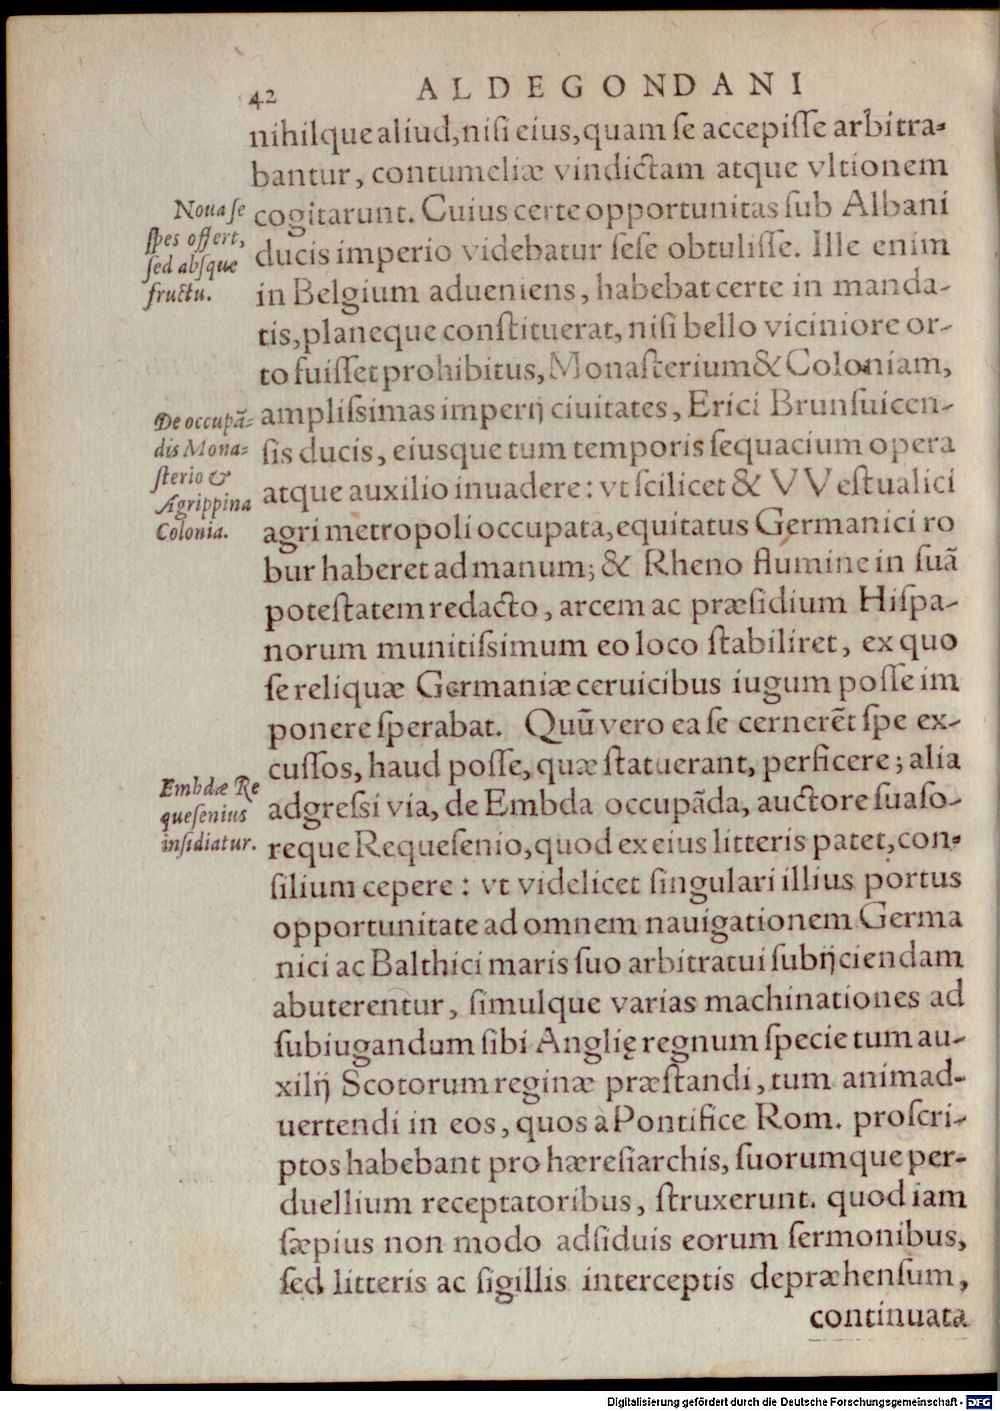 42 ALDEGONDANI
nihilque aliud, nisi eius, quam se accepiſſe arbitra-
bantur, contumeliæ vindictam atque vltionem
cogitarunt. Cuius certe opportunitas ſub Albani
ducis imperio videbatur ſeſe obtuliſſe. Ille enim
in Belgium adueniens, habebat certe in manda-
tis, planeque conſtituerat, niſi bello viciniore or-
to fuiſſet prohibitus, Monaſterium & Coloniam,
ampliſsimas imperij ciuitates, Erici Brunſuicen-
ſis ducis, eiusque tum temporis ſequacium opera
atque auxilio inuadere: vt ſcilicet & VVeſtualici
agri metropoli occupata, equitatus Germanici ro
bur haberet ad manum; & Rheno flumine in ſuã
poteſtatem redacto, arcem ac præſidium Hiſpa-
norum munitiſsimum eo loco ſtabiliret, ex quo
ſe reliquæ Germaniæ ceruicibus iugum poſſe im
ponere ſperabat. Quũ vero ea ſe cernerẽt ſpe ex-
cuſſos, haud poſſe, quæ ſtatuerant, perficere; alia
adgreſsi via, de Embda occupãda, auctore ſuaſo-
reque Requeſenio, quod ex eius litteris patet, con-
ſilium cepere: vt videlicet ſingulari illius portus
opportunitate ad omnem nauigationem Germa
nici ac Balthici maris ſuo arbitratui ſubijciendam
abuterentur, ſimulque varias machinationes ad
ſubiugandum ſibi Anglię regnum ſpecie tum au-
xilij Scotorum reginæ præſtandi, tum animad-
uertendi in eos, quos à Pontifice Rom. proſcri-
ptos habebant pro hæreſiarchis, ſuorumque per-
duellium receptatoribus, ſtruxerunt. quod iam
ſæpius non modo adſiduis eorum ſermonibus,
ſed litteris ac ſigillis interceptis depræhenſum,
continuata
Noua ſe
ſpes offert,
ſed abſque
fructu.
De occupã-
dis Mona-
ſterio &
Agrippina
Colonia.
Embdæ Re
queſenius
inſidiatur.
Digitalisierung gefördert durch die Deutsche Forschungsgemeinschaft - DFG